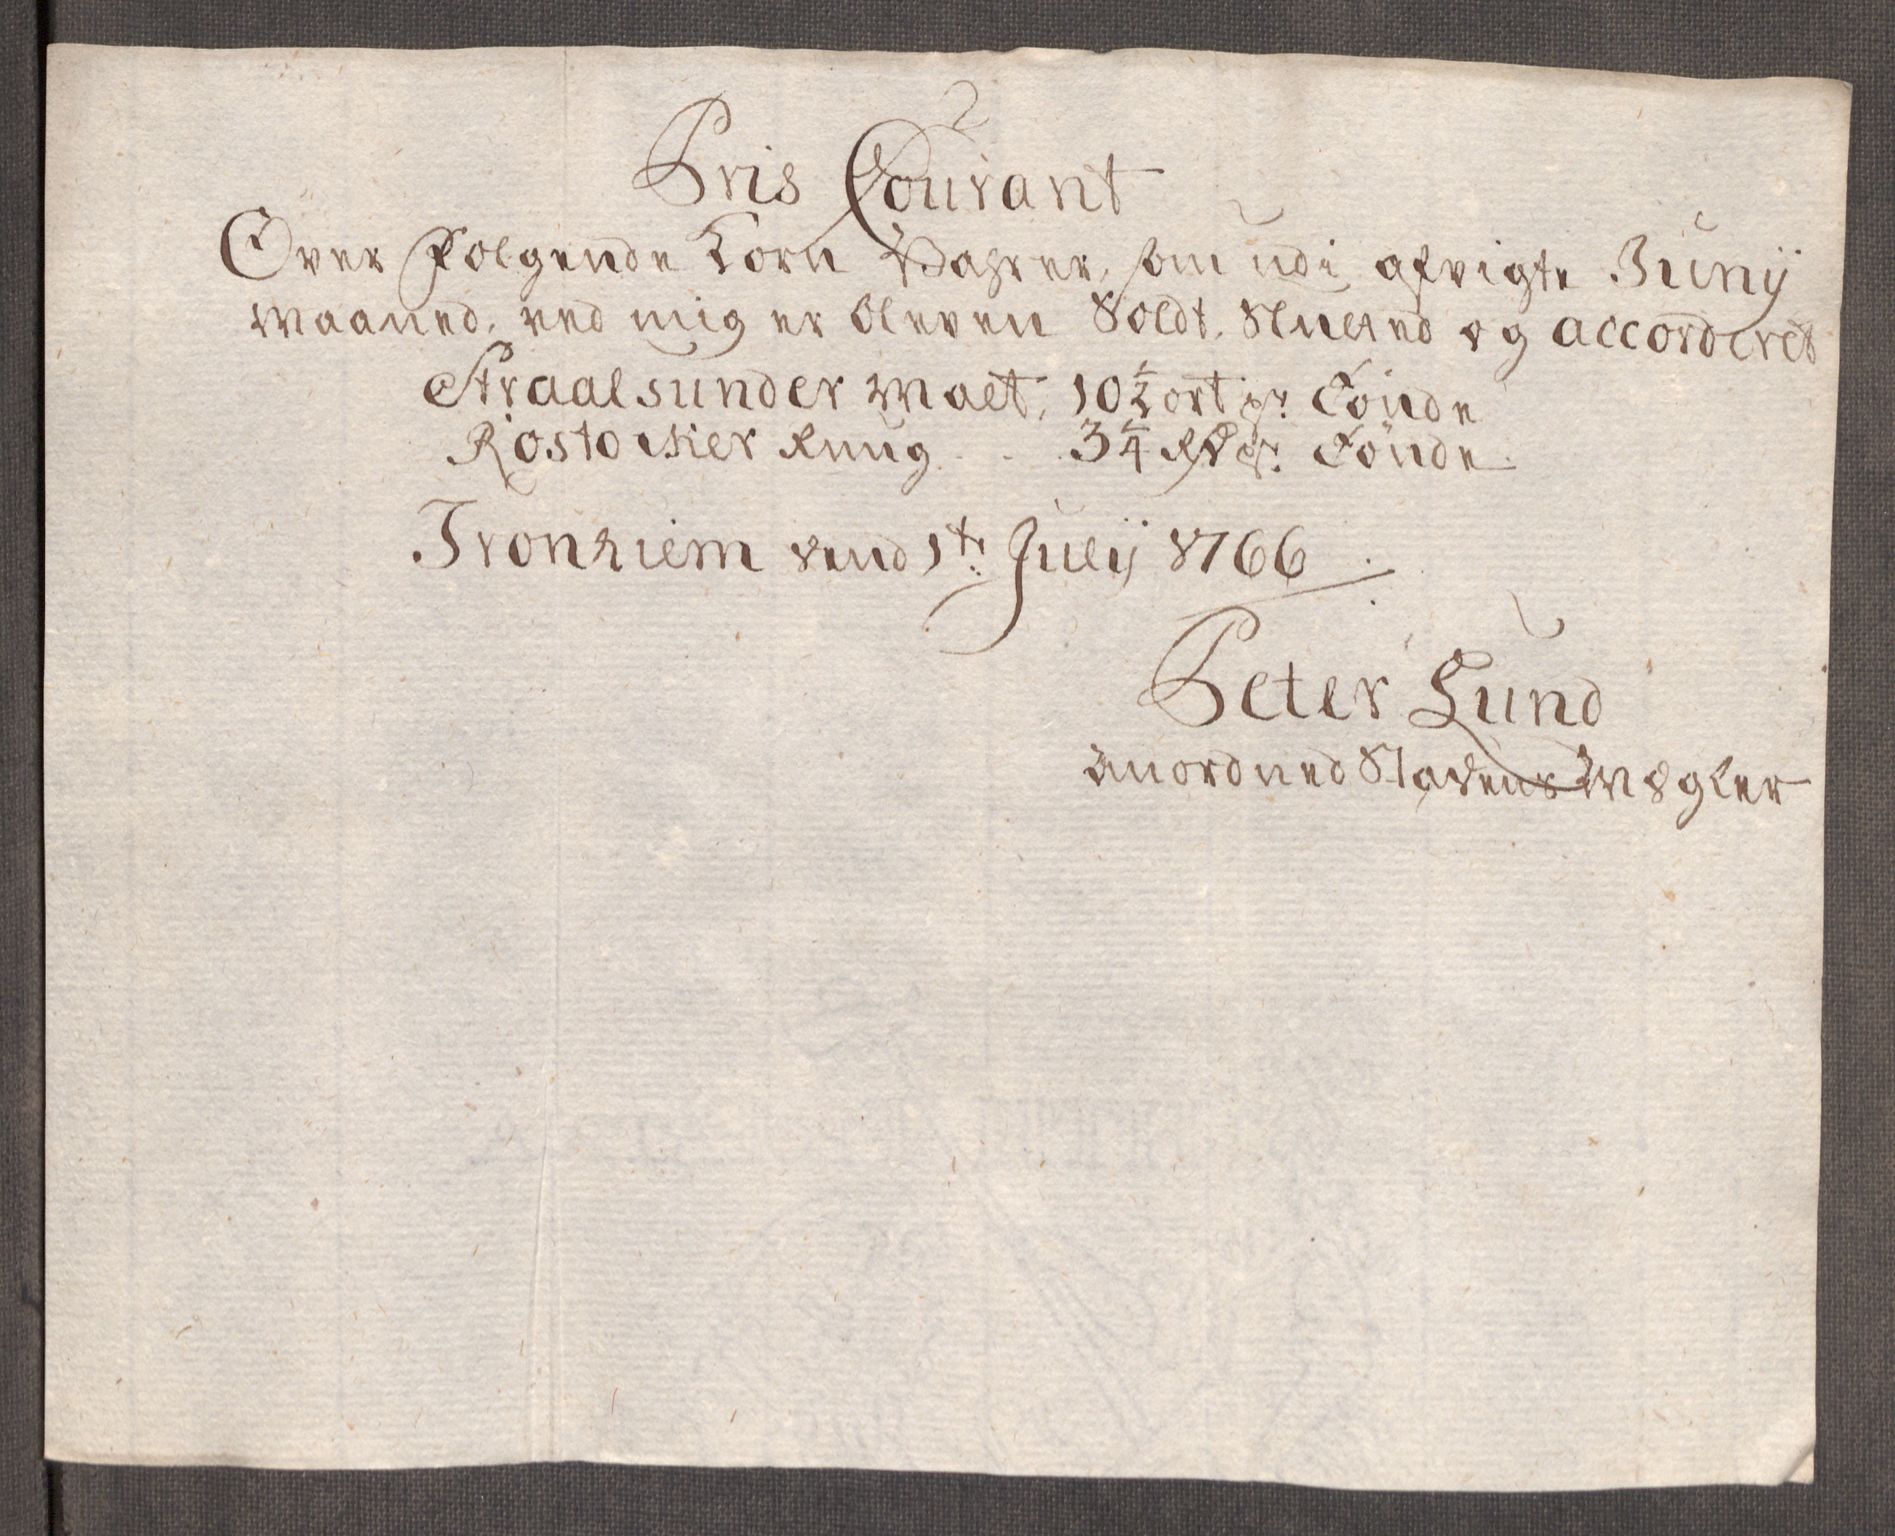 Pris Courant
Over Følgende Korn Vahrer, som udi afvigte Junÿ
Maaned, ved mig er bleven Soldt, Slutted og accorderet
Straalsunder Malt, 10½ ort pr Tønde
Rostocker Ruug 3¼ Rdr pr Tønde
Tronhiem dend 1te Julÿ 1766
Peter Lund
Anordned Stadens Mægler